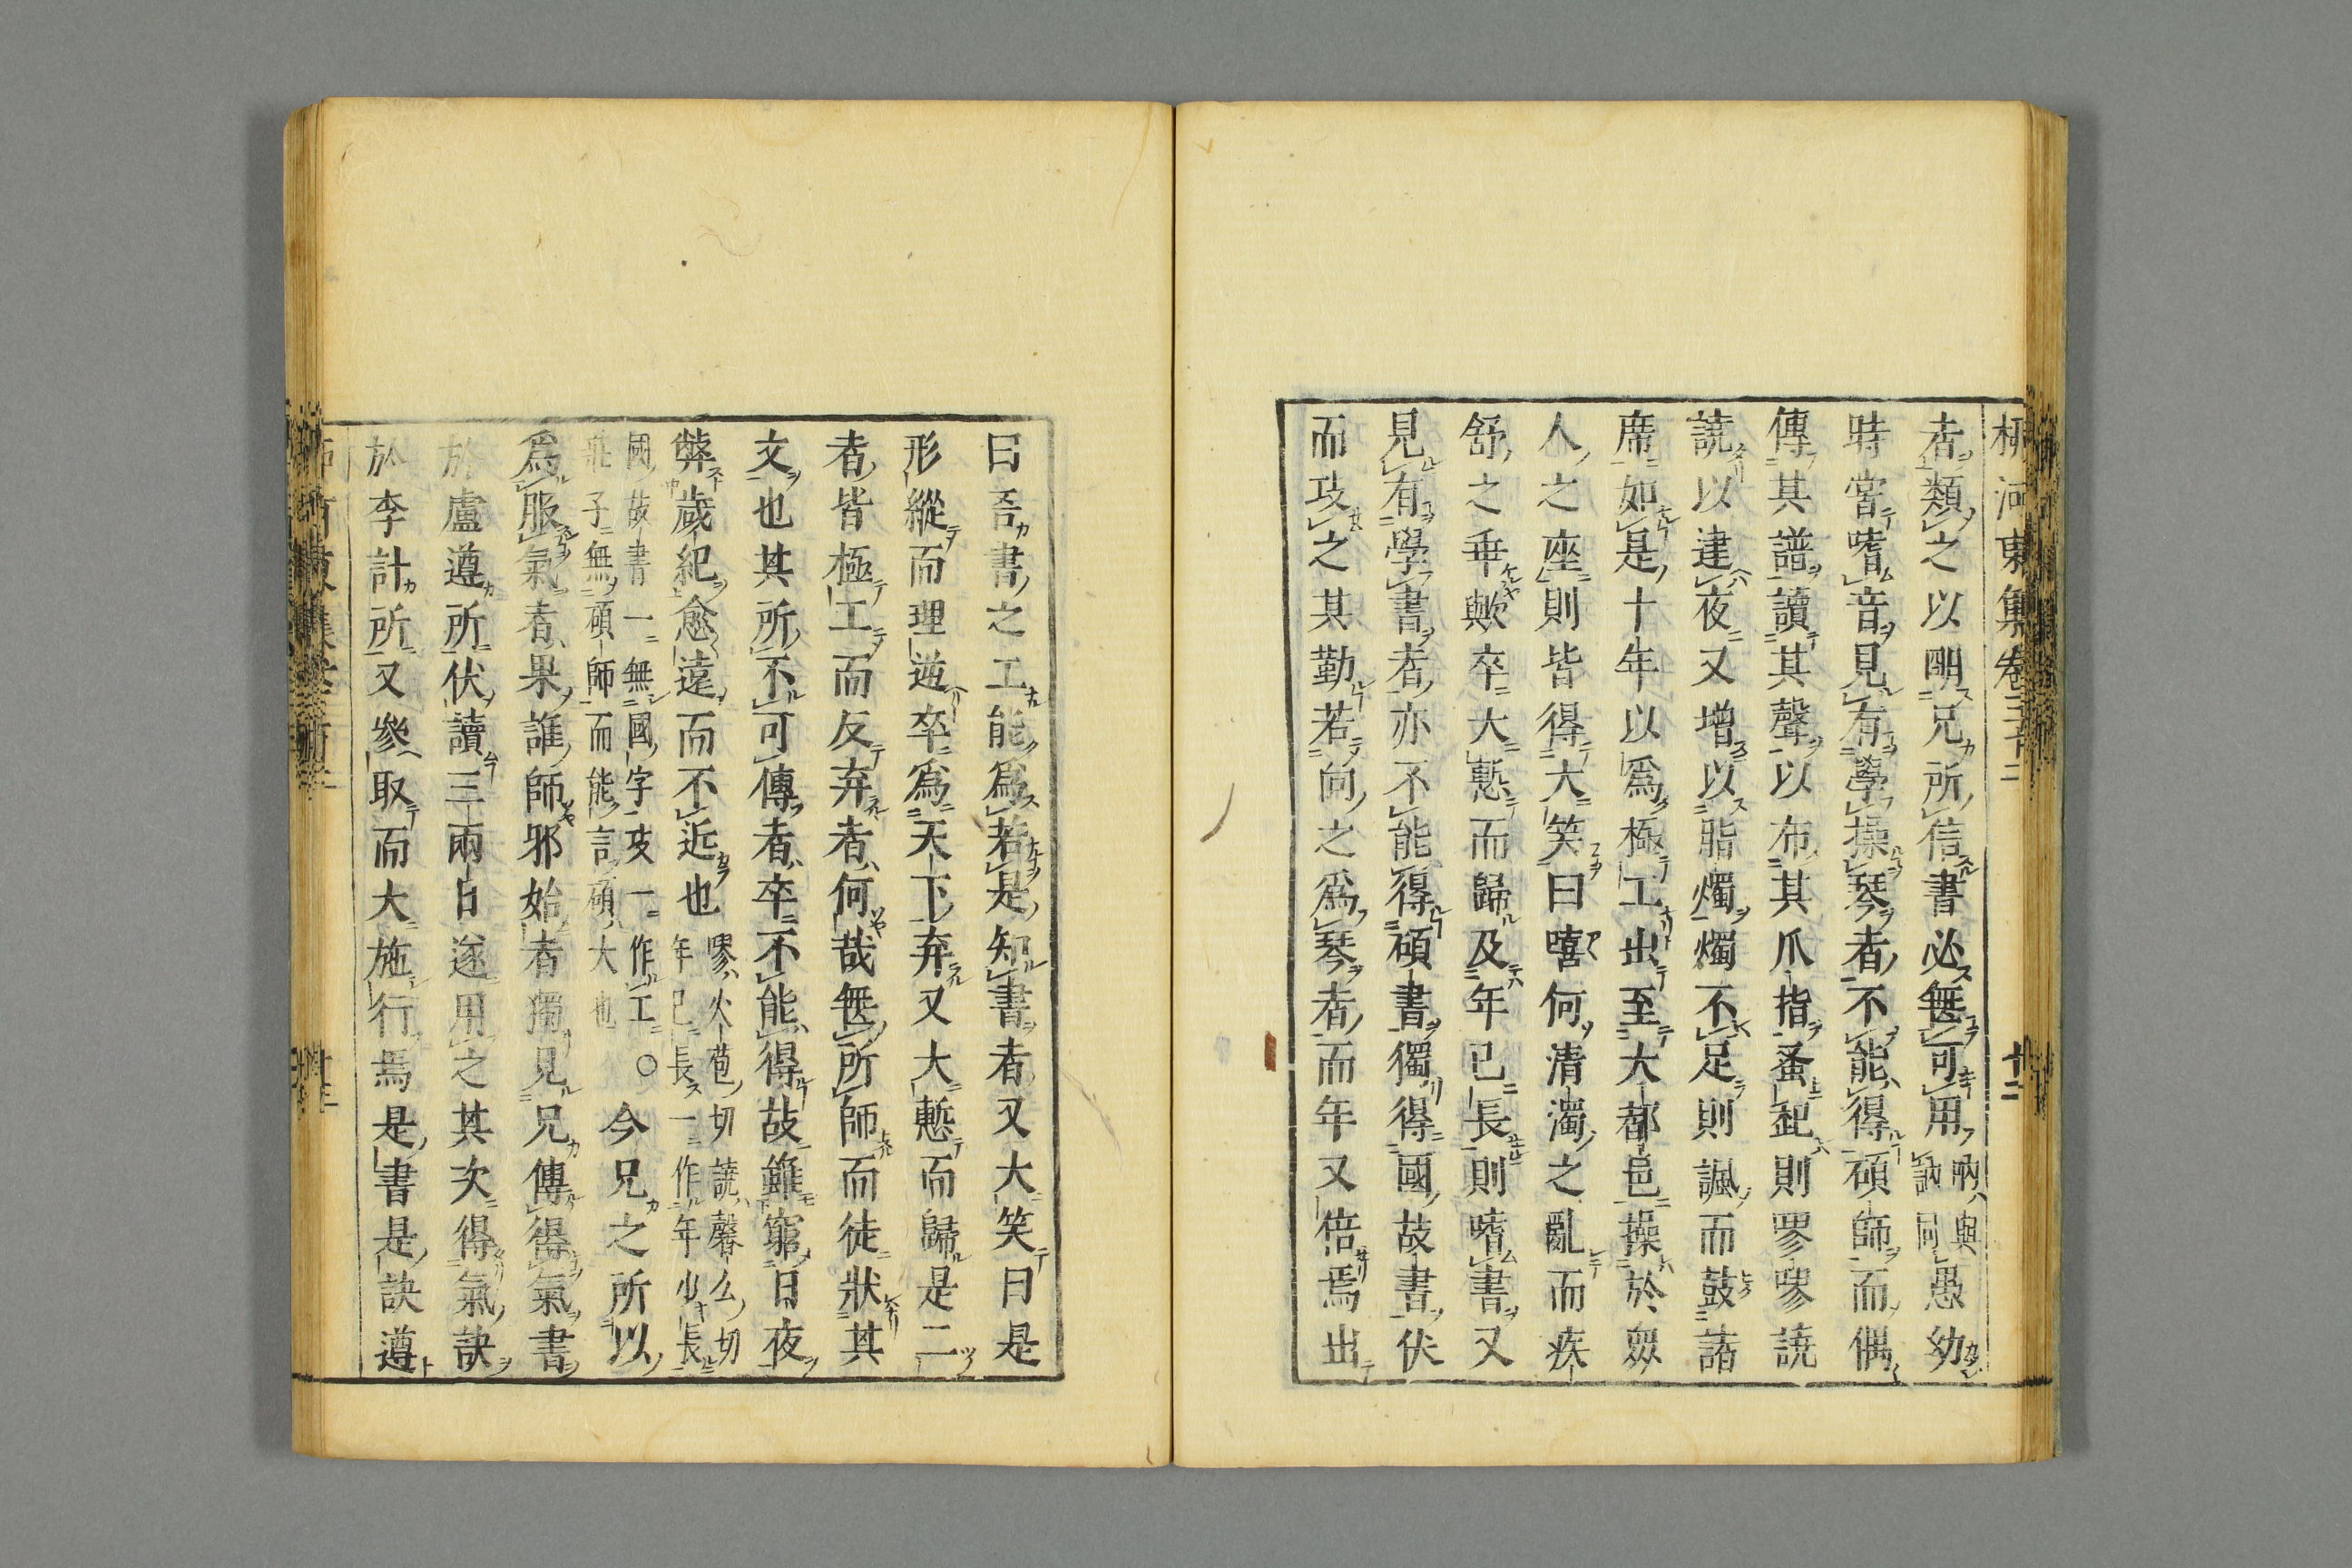 柳河東集卷三十二 十二
者類之以明兄所信書必無可用吶與訥同愚幼
時嘗嗜音見有學操琴者不能得碩師而偶
傳其譜讀其聲以布其爪指蚤起則嘐嘐譊
譊以逮夜又增以脂燭燭不足則諷而鼓諸
席如是十年以爲極工出至大都邑操於衆
人之座則皆得大笑曰嘻何清濁之亂而疾
舒之乖歟卒大慙而歸及年已長則嗜書又
見有學書者亦不能得碩書獨得國故書伏
而攻之其勤若向之爲琴者而年又倍焉出
曰吾書之工能爲若是知書者又大笑曰是
形縱而理逆卒爲天下弃又大慙而歸是二
者皆極工而反弃者何哉無所師而徒狀其
文也其所不可傳者卒不能得故雖窮日夜
弊歲紀愈遠而不近也嘐火苞切譊馨么切年已長一作年少長
國故書一無國字攻一作工○莊子無碩師而能言碩大也今兄之所以
爲服氣者果誰師邪始者獨見兄傳得氣書
於盧遵所伏讀三兩日遂用之其次得氣訣
於李計所又參取而大施行焉是書是訣遵